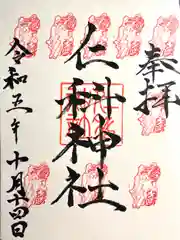 奉拝
仁科神社
令和五年十月十四日